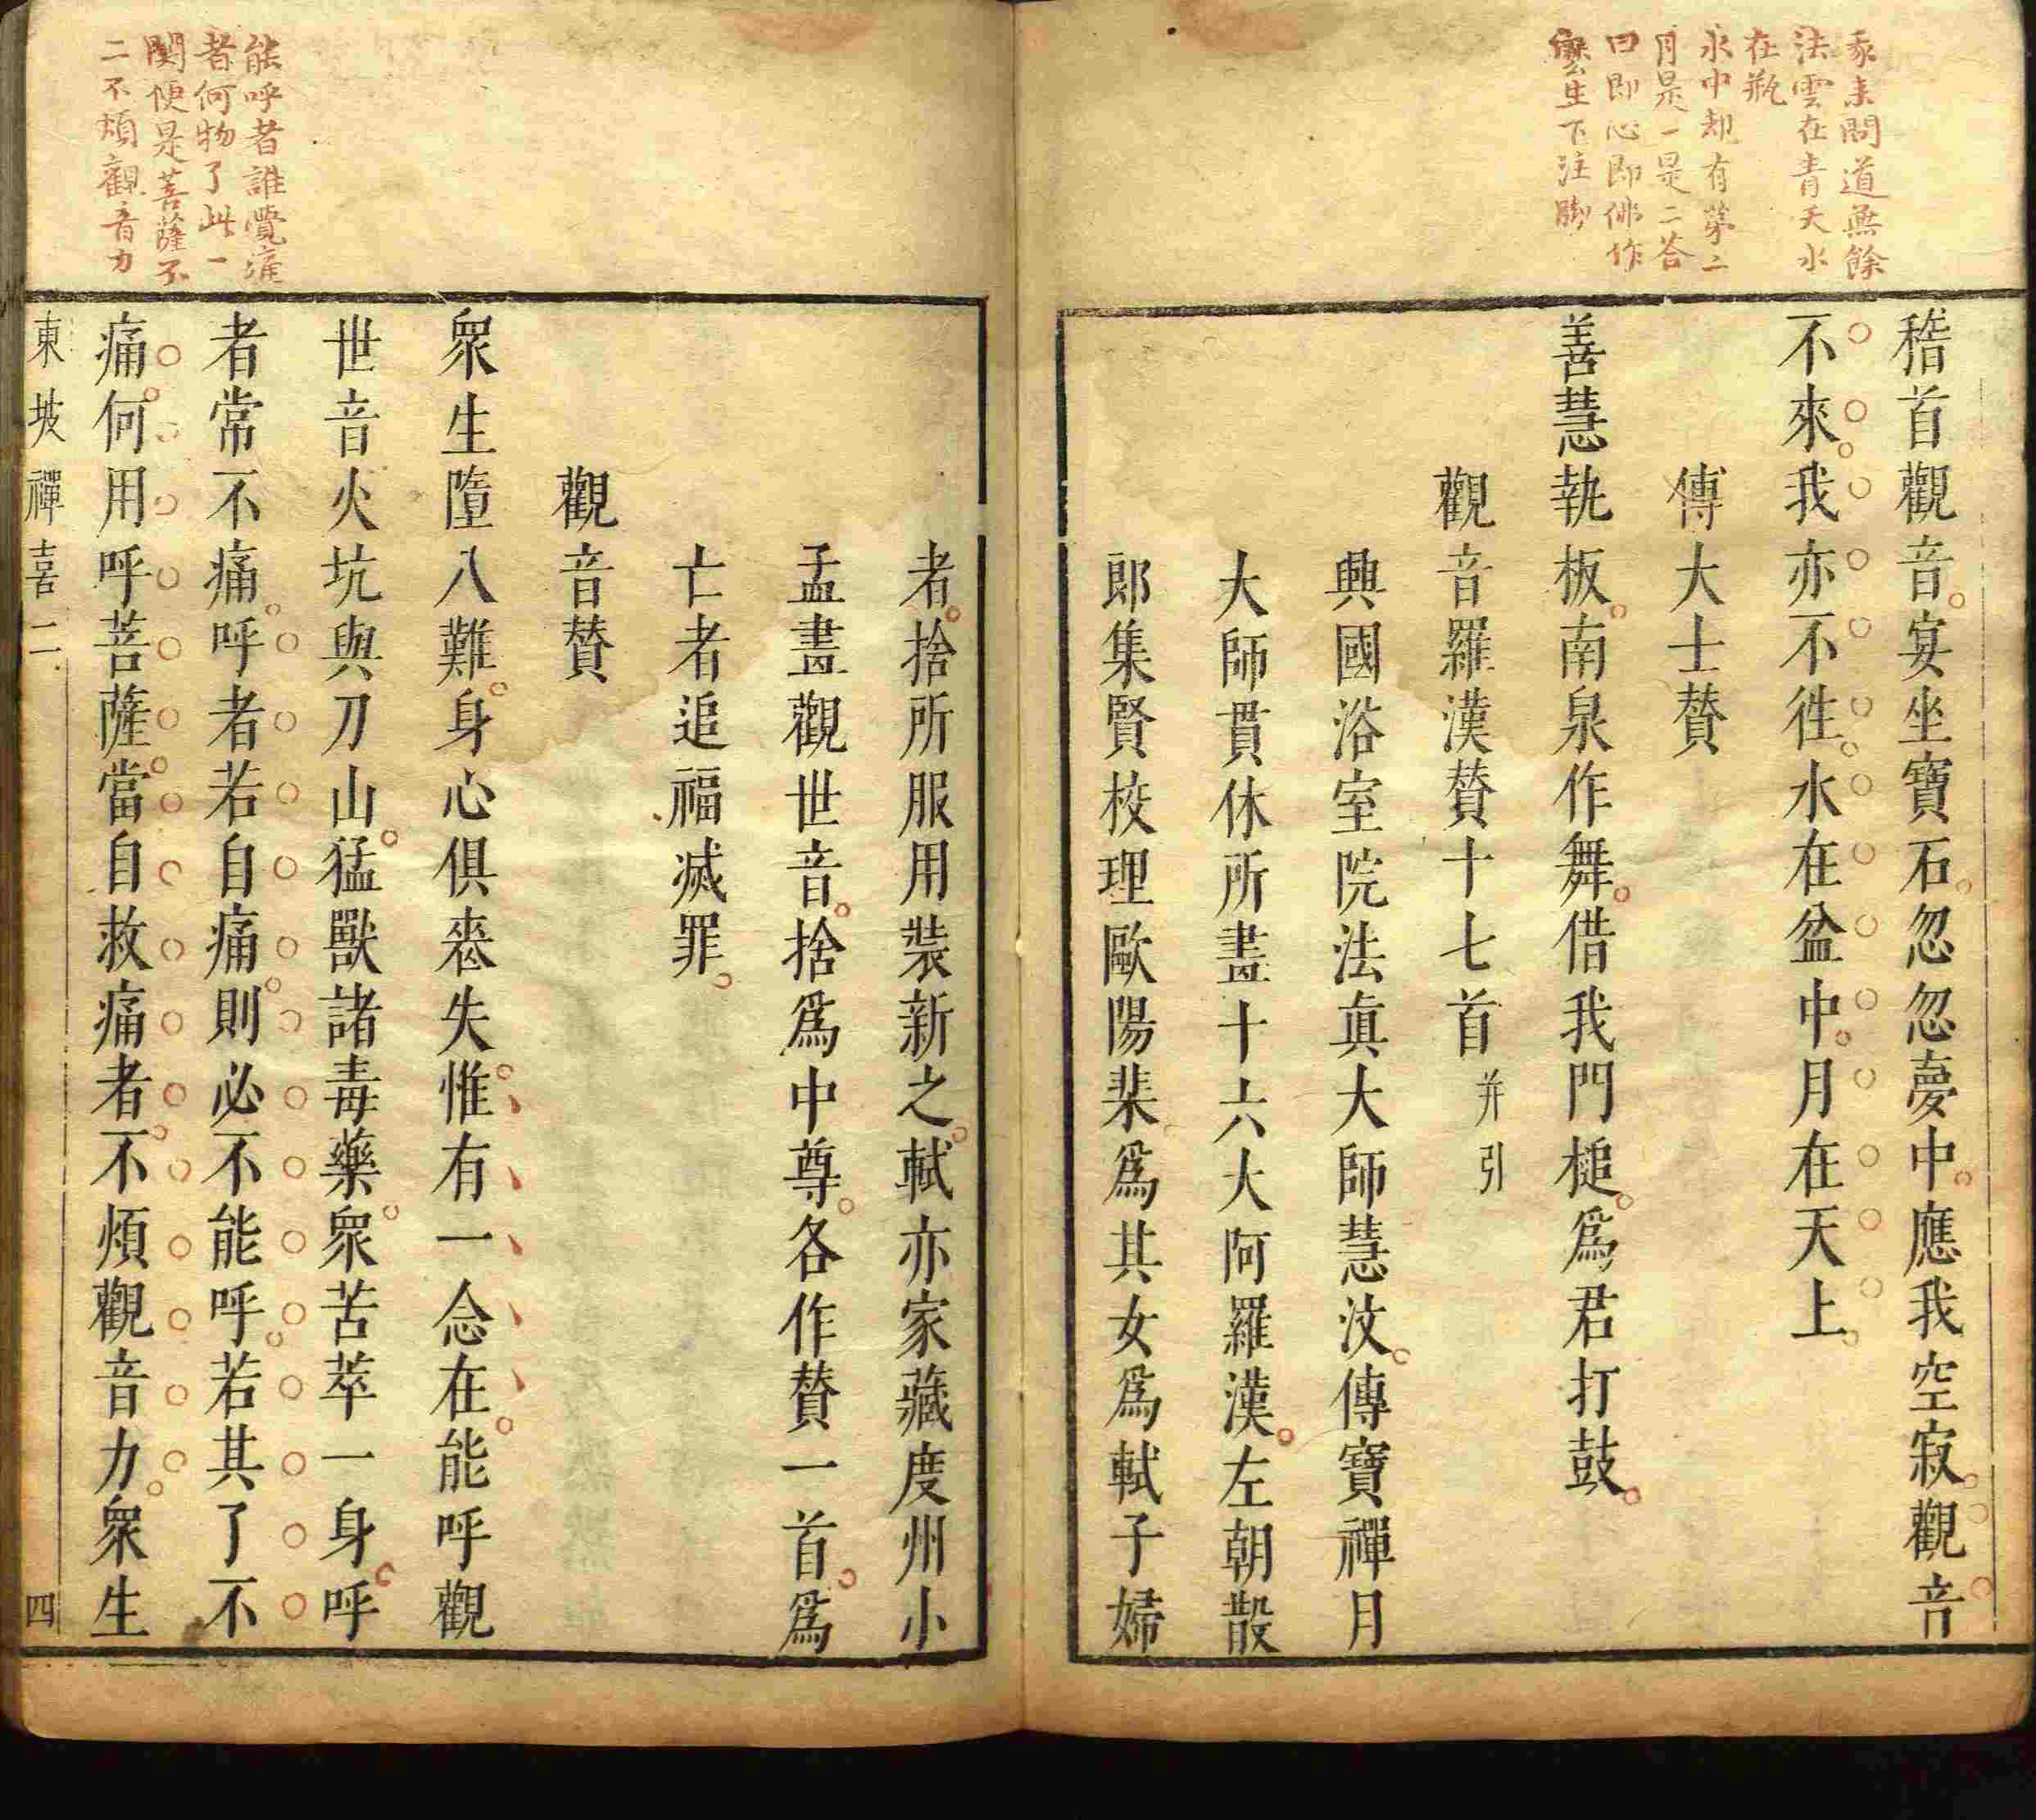 我來問道無餘
法雲在青天水
在瓶
水中却有第二
月是一是二答
曰即心即佛作
生下注脚
稽首觀音宴坐寶石忽忽夢中應我空寂觀音
不來我亦不徃水在盆中月在天上
傅大士贊
善慧執板南泉作舞借我門槌爲君打鼓
觀音羅漢贊十七首并引
興國浴室院法眞大師慧汶傳寶禪月
大師貫休所畫十六大阿羅漢左朝散
郎集賢校理歐陽棐爲其女爲軾子婦
者捨所服用裝新之軾亦家藏度州小
孟畫觀世音捨爲中尊各作贊一首爲
亡者追福滅罪
觀音贊
眾生墮八難身心俱喪失惟有一念在能呼觀
世音火坑與刀山猛獸諸毒藥眾苦萃一身呼
者常不痛呼者若自痛則必不能呼若其了不
痛何用呼菩薩當自救痛者不煩觀音力眾生
能呼者誰覺痛
者何物了此一
關便是菩薩不
二不煩觀音力
東坡禪喜二
四